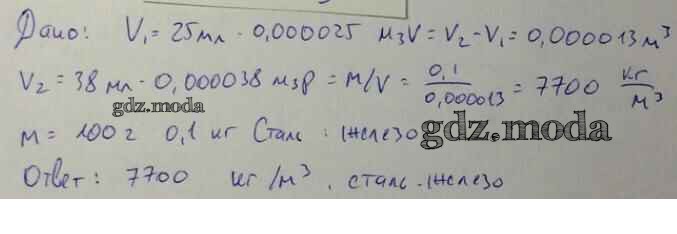 Дано: V₁ = 25мл · 0,000025 м3V = V₂ - V₁ = 0,000013м³
V₂ = 38 мл · 0,000038 м3ρ = м/V = 0,1/0,000013 = 7700 кг/м³
gdz.moda
м = 100 г 0,1 кг Сталь : железо gdz.moda
Ответ: 7700 кг/м³, сталь.железо